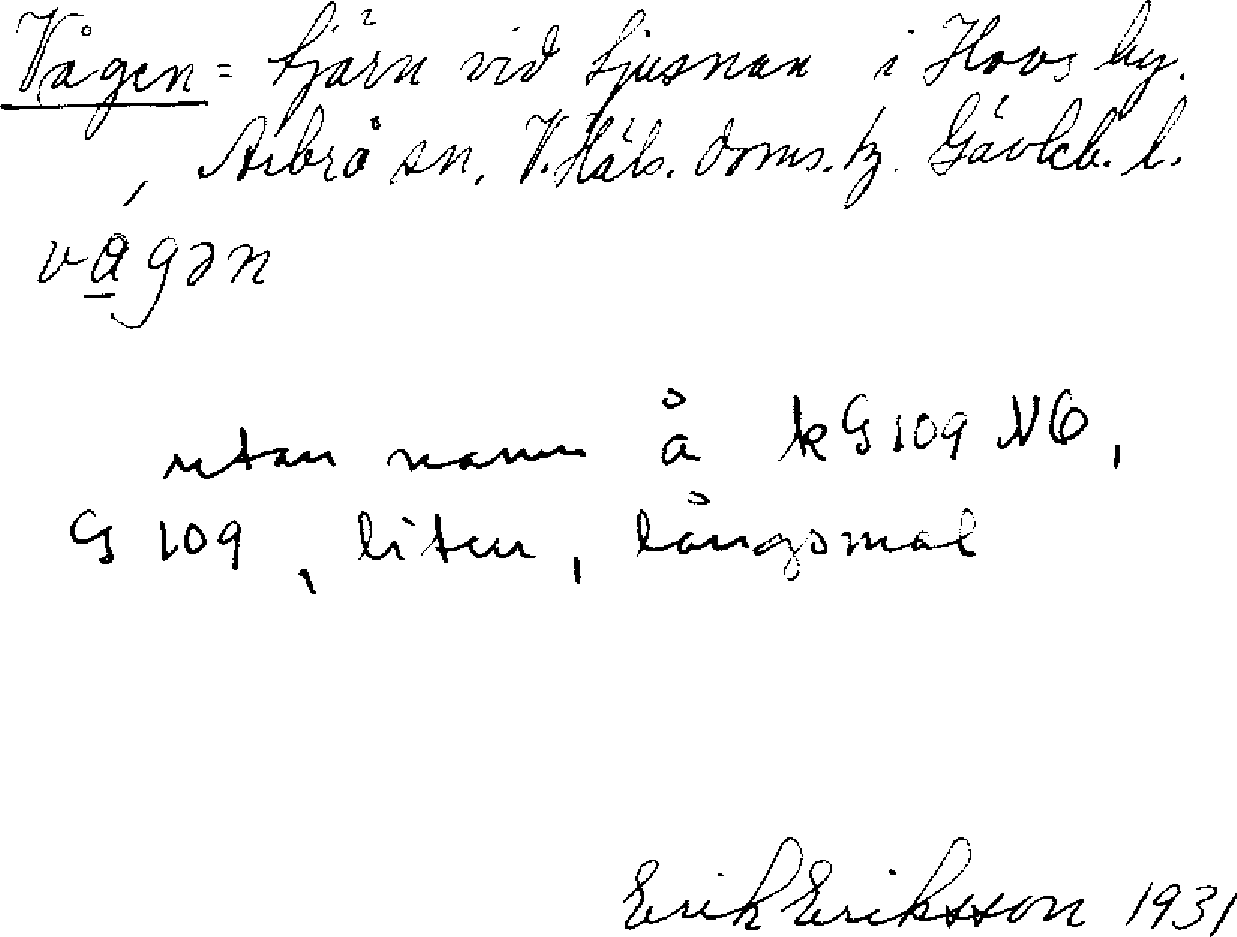 Vågen = tjärn vid Ljusnan i Hovs by.
Arbrå sn. V. Häls. doms. Gävleb. l.
vågən
utan namn å kG109 NO,
G 109, liten, långsmal
Erik Eriksson 1931